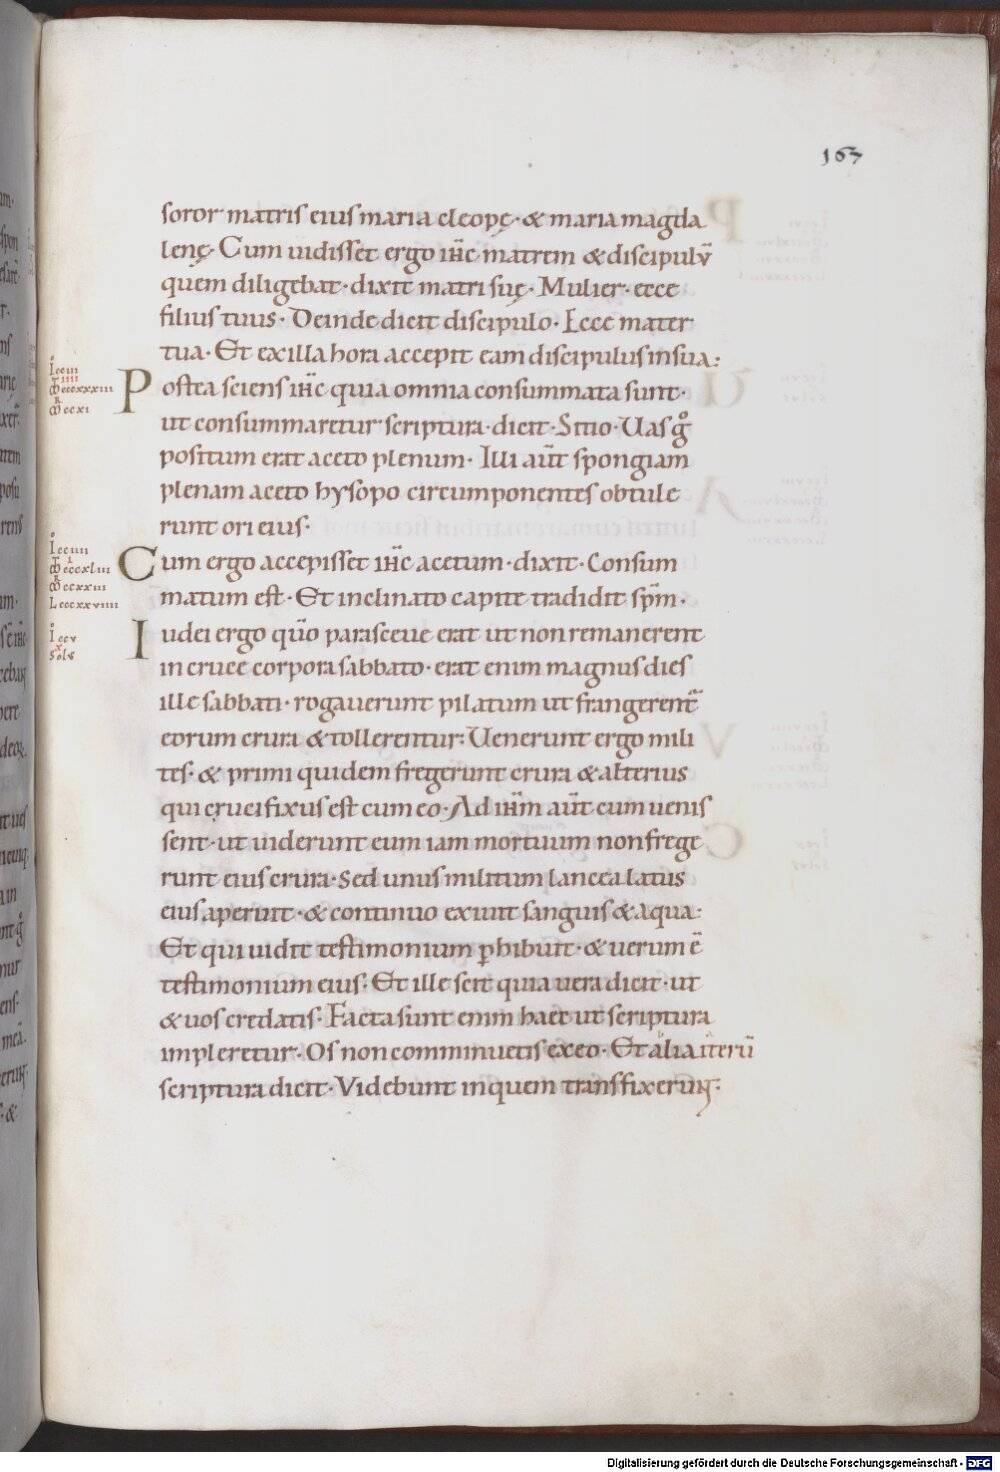 167
soror matris eius maria cleopę· & maria magda
lenę· Cum uidisset ergo ihc̄ matrem & discipulū
quem diligebat· dixit matri suę· Mulier· ecce
filius tuus· Deinde dicit discipulo· Ecce mater
tua· Et ex illa hora accepit eam discipulus in sua:
Postea sciens ihc̄ quia omnia consummata sunt·
ut consummaretur scriptura· dicit· Sitio· Uas gͦ
positum erat aceto plenum· Illi aūt spongiam
plenam aceto hysopo circumponentes obtule
runt ori eius·
Cum ergo accepisset ihc̄ acetum· dixit· Consum
matum est· Et inclinato capite tradidit sp̄m·
Iudei ergo qūo parasceue erat ut non remanerent
in cruce corpora sabbato· erat enim magnus dies
ille sabbati· rogauerunt pilatum ut frangerent̄
eorum crura & tollerentur: Uenerunt ergo mili
tes· & primi quidem fregerunt crura & alterius
qui crucifixus est cum eo· Ad ihm̄ aūt cum uenis
sent· ut uiderunt eum iam mortuum non frege
runt eius crura· Sed unus militum lancea latus
eius aperuit· & continuo exiuit sanguis & aqua:
Et qui uidit testimonium ꝑhibuit· & uerum ē
testimonium eius· Et ille scit quia uera dicit· ut
& uos credatis· Facta sunt enim haec ut scriptura
impleretur· Os non comminuetis ex eo· Et alia iterū
scriptura dicit· Videbunt in quem transfixerun̄t·
Digitalisierung gefördert durch die Deutsche Forschungsgemeinschaft - DFG